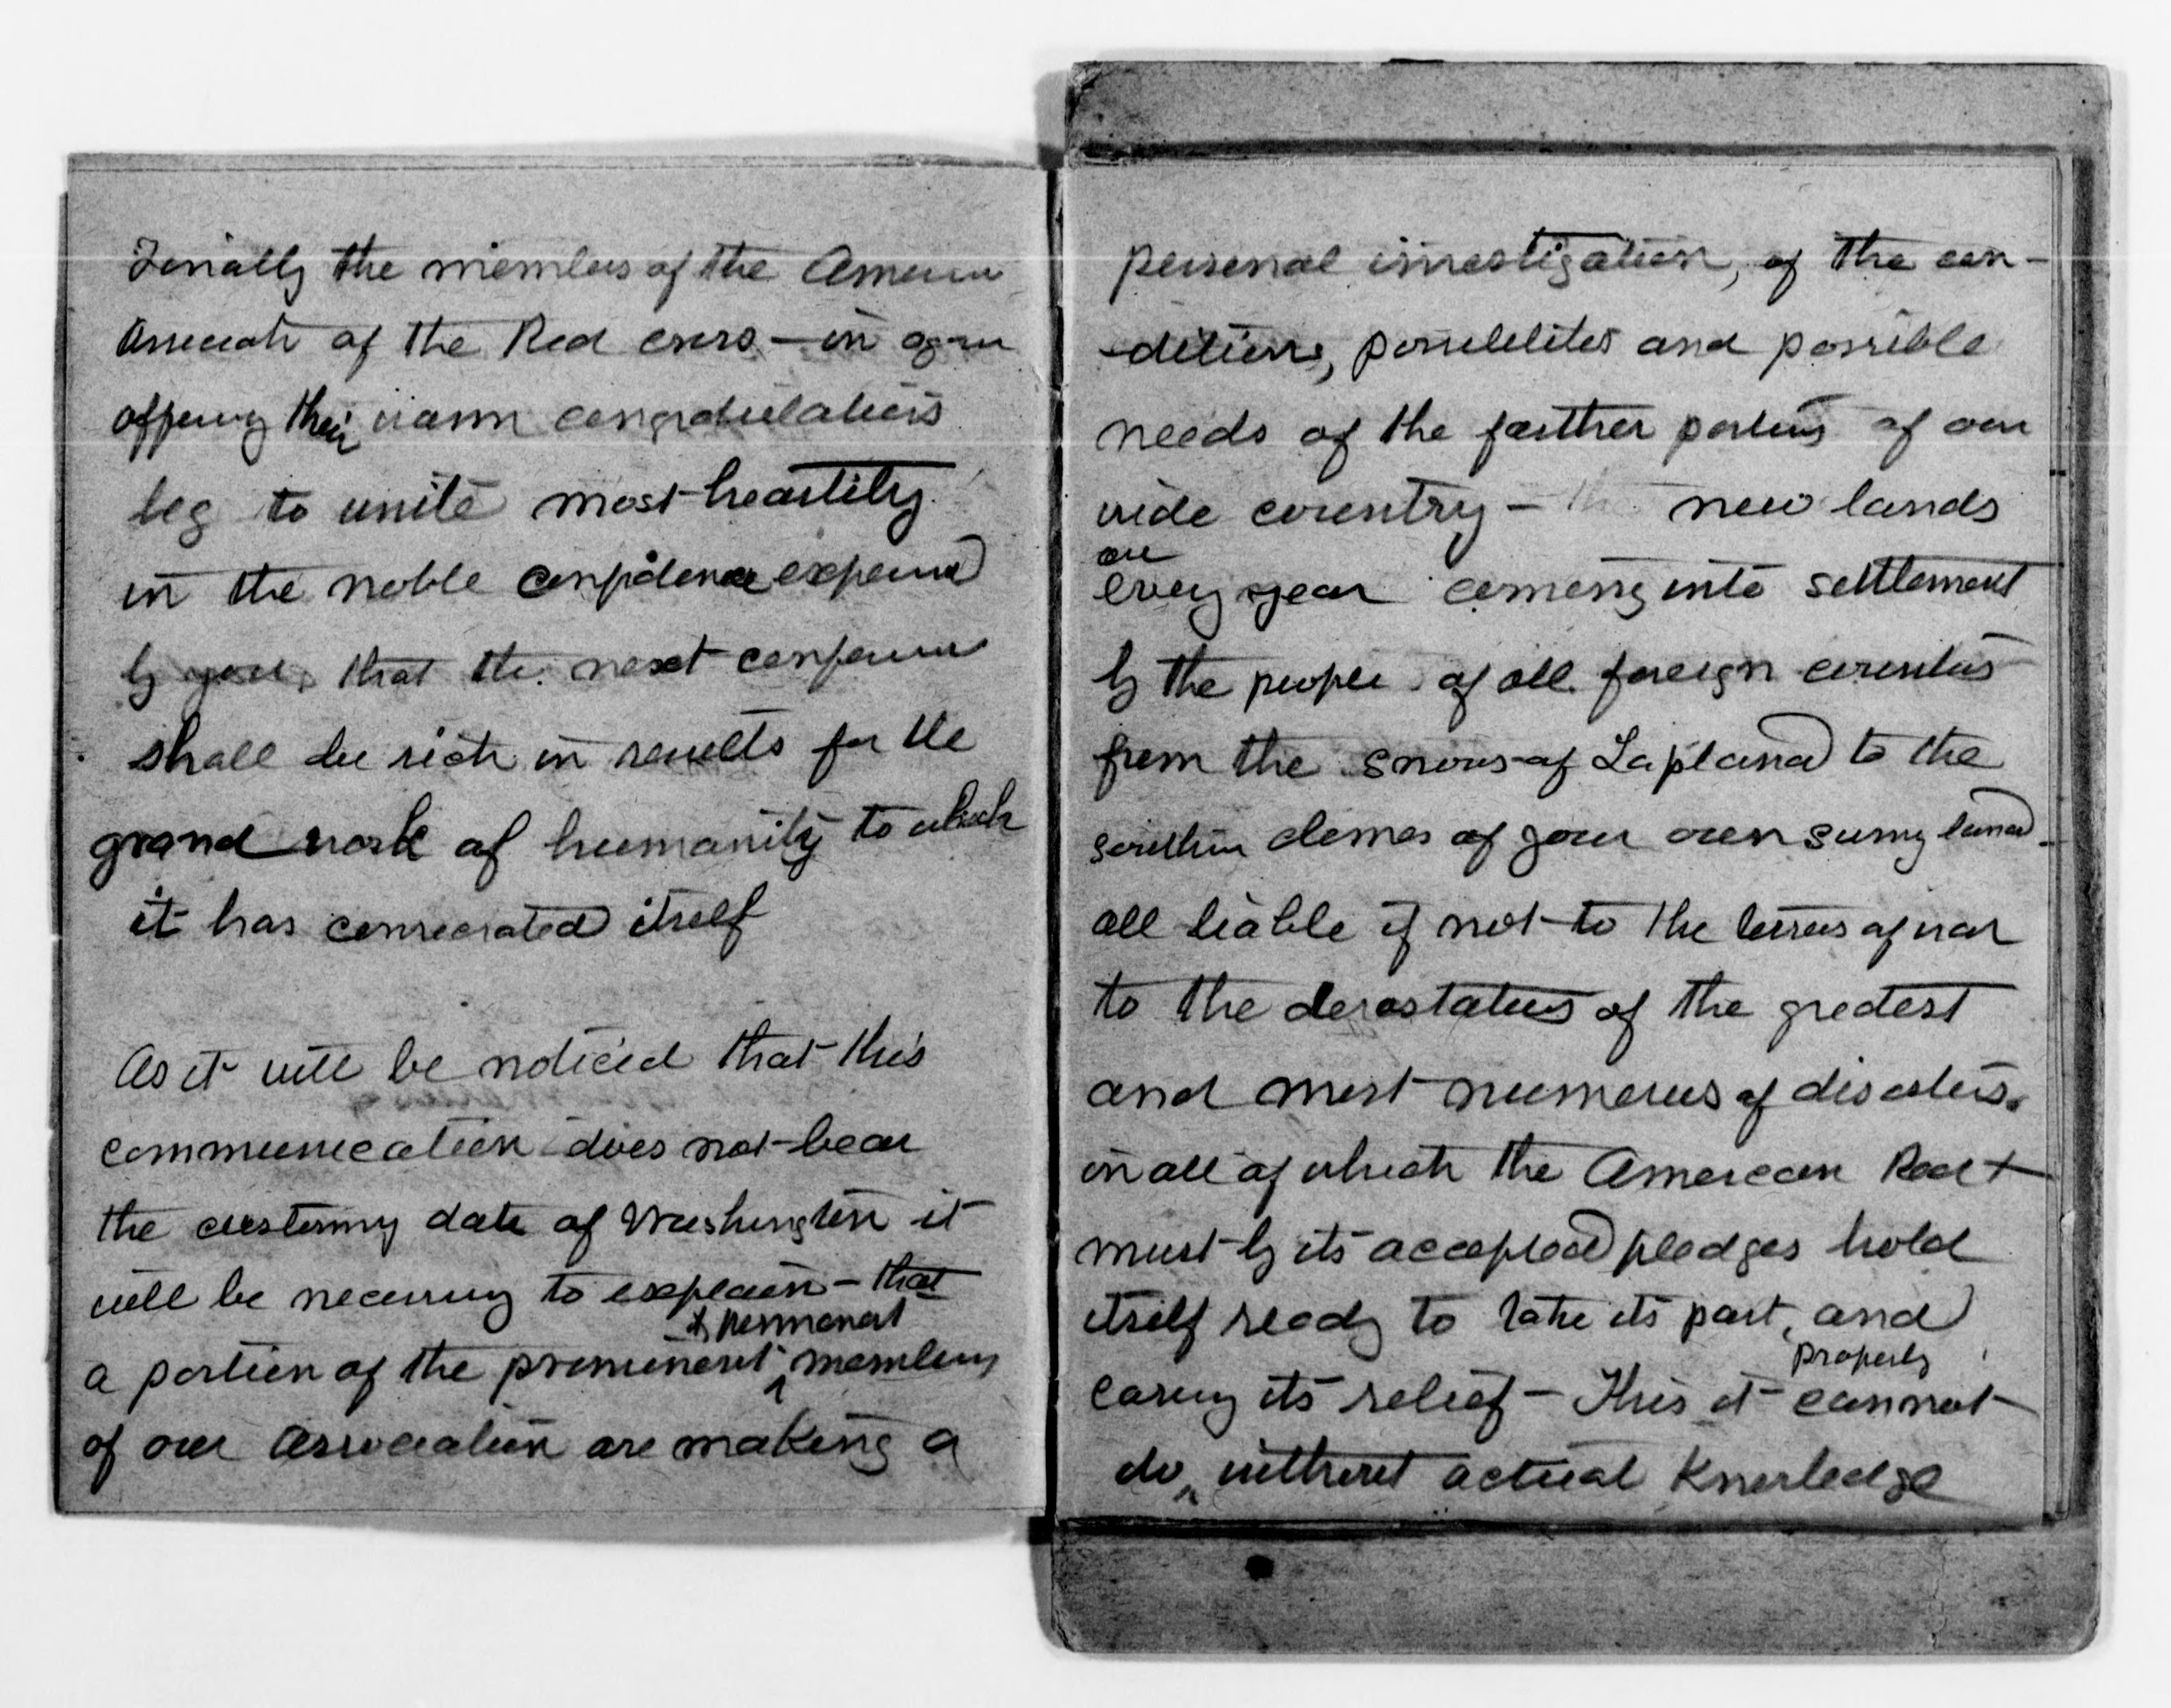 Finally the members of the Americn
Associatn of the Red cross — in again
offering their warm congratulations
beg to unite most heartily
in the noble confidence expressed
by you, that the next conference
shall be rich in results for the
grand work of humanity to which
it has consecrated itself
As it will be noticed that this
communication does not bear
the customry date of Washington it
will be necessary to explain – that
& permanent
a portion of the prominent ^ members
of our Association are making a
personal investigation, of the con-
-ditions, possibilites and possible
needs of the farther portions of our
wide country – the new lands
are
every year coming into settlement
by the people of all foreign countries
from the snows of Lapland to the
southern climes of your own sunny land –
all liable if not to the terrors of war
to the devastatios of the greatest
and most numerous of disasters.
in all of which the American Red +
must by its accepted pledges hold
itself ready to take its part, and
properly
carry its relief – This it cannot
do ^ without actual Knowledge